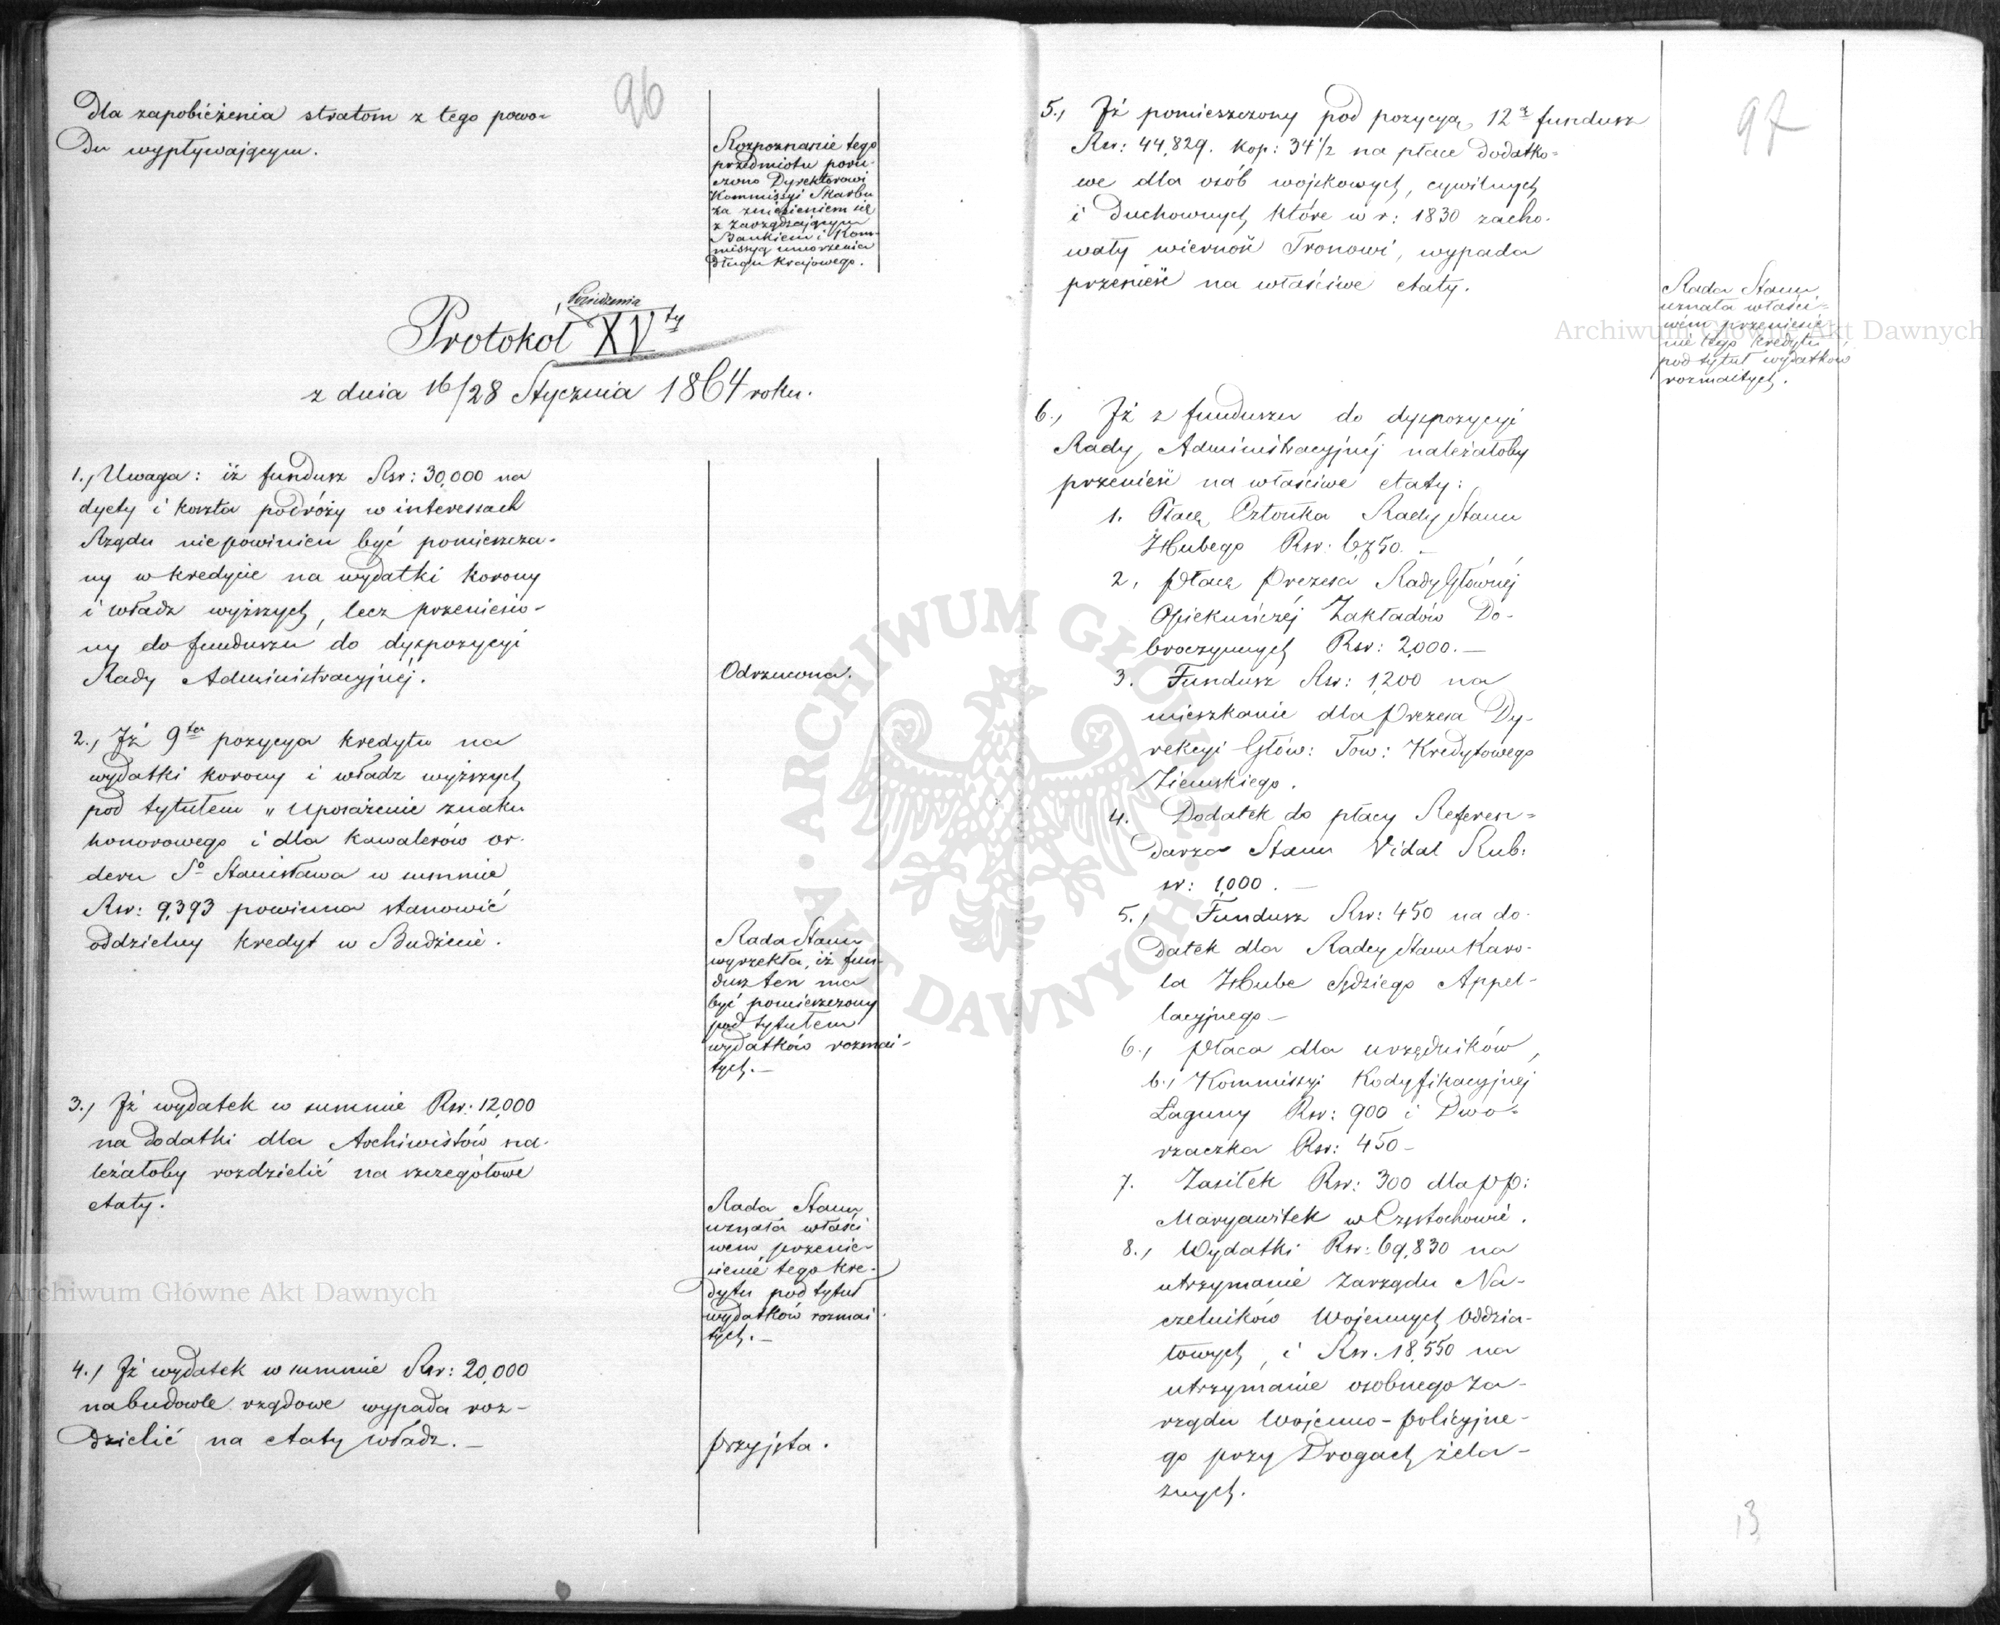 96
Dla zapobieżenia stratom z tego powo-
du wypływającym.
Rozpoznanie tego
przedmiotu poru-
czono Dyrektorowi
Kommissyi Skarbu
za zniesieniem się
z zarządzającym
Bankiem i Kom-
missyą umorzenia
długu krajowego.
Posiedzenia
Protokół XVty
z dnia 16/28 Stycznia 1864 roku.
1., Uwaga: iż fundusz Rsr: 30,000 na
dyety i koszta podróży w interessach
Rządu niepowinien być pomieszcza-
ny w kredycie na wydatki korony
i władz wyższych, lecz przeniesio-
ny do funduszu do dyspozycyi
Rady Administracyjnéj.
Odrzucona.
2., Iż 9ta pozycya kredytu na
wydatki korony i władz wyższych
pod tytułem „Uposażenie znaku
honorowego i dla kawalerów or-
deru So Stanisława w summie
Rsr: 9,393 powinna stanowić
oddzielny kredyt w Budżecie.
Rada Stanu
wyrzekła, iż fun-
dusz ten ma
być pomieszczony
pod tytułem
wydatków rozmai-
tych.—
3., Iż wydatek w summie Rsr: 12,000
na dodatki dla Archiwistów na-
leżałoby rozdzielić na szczegółowe
etaty.
Rada Stanu
uznała właści
wem przenie-
sienie tego kre-
dytu pod tytuł
wydatków rozmai-
tych.—
4., Iż wydatek w summie Rsr: 20,000
na budowle rządowe wypada roz-
dzielić na etaty władz.—
Przyjęta.
97
5., Iż pomieszczony pod pozycyą 12ą fundusz
Rsr: 44,829. kop: 34 1/2 na płace dodatko-
we dla osób wojskowych, cywilnych
i duchownych, które w r: 1830 zacho-
wały wierność Tronowi, wypada
przenieść na właściwe etaty.
Rada Stanu
uznała właści-
wém przeniesie-
nie tego kredytu
pod tytuł wydatków
rozmaitych.
6., Iż z funduszu do dyspozycyi
Rady Administracyjnéj należałoby
przenieść na właściwe etaty:
1. Płacę Członka Rady Stanu
Hubego Rsr: 6,750.—
2, Płacę Prezesa Rady Głównéj
Opiekuńczéj Zakładów Do-
broczynnych Rsr: 2,000.—
3. Fundusz Rsr: 1,200 na
mieszkanie dla Prezesa Dy-
rekcyi Głów: Tow: Kredytowego
Ziemskiego.
4. Dodatek do płacy Referen-
darza Stanu Vidal Rub:
sr: 1,000.—
5., Fundusz Rsr: 450 na do-
datek dla Radcy Stanu Karo-
la Hube Sędziego Appel-
lacyjnego—
6., Płaca dla urzędników,
b., Kommissyi Kodyfikacyjnej
Łaguny Rsr: 900 i Dwo-
rzaczka Rsr: 450—
7. Zasiłek Rsr: 300 dla PP:
Maryawitek w Częstochowie.
8., Wydatki Rsr: 69,830 na
utrzymanie Zarządu Na-
czelników Wojennych Oddzia-
łowych, i Rsr. 18,550 na
utrzymanie osobnego Za-
rządu Wojenno-policyjne-
go przy Drogach żela-
znych.
13
Archiwum Główne Akt Dawnych
Archiwum Główne Akt Dawnych
ARCHIWUM GŁÓWNE AKT DAWNYCH